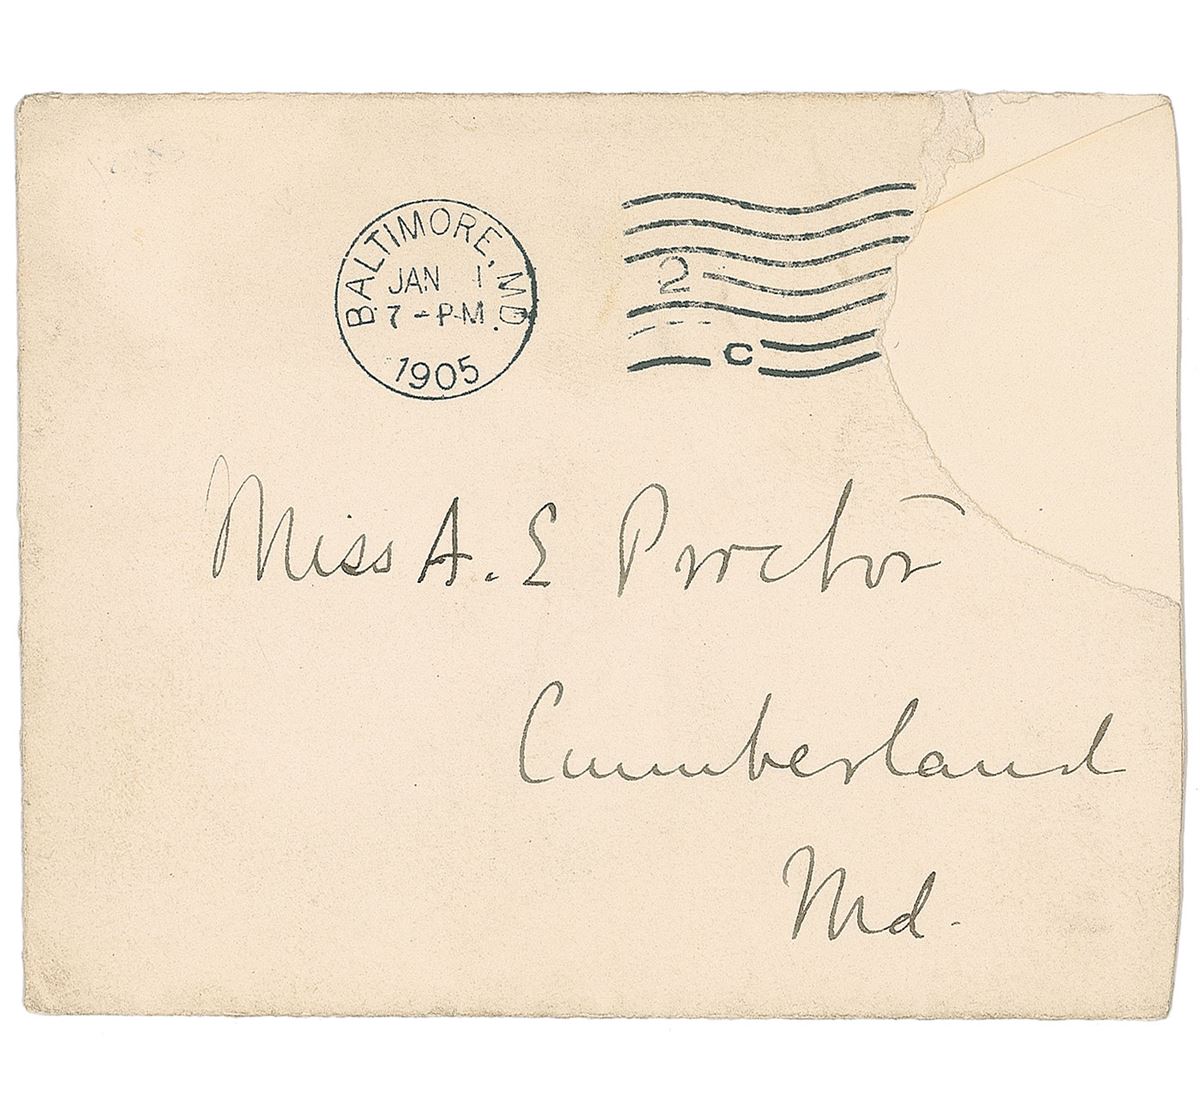 BALTIMORE, MD.
JAN 1
7-PM
1905
2
C
Miss A. E Proctor
Cumberland
Md.